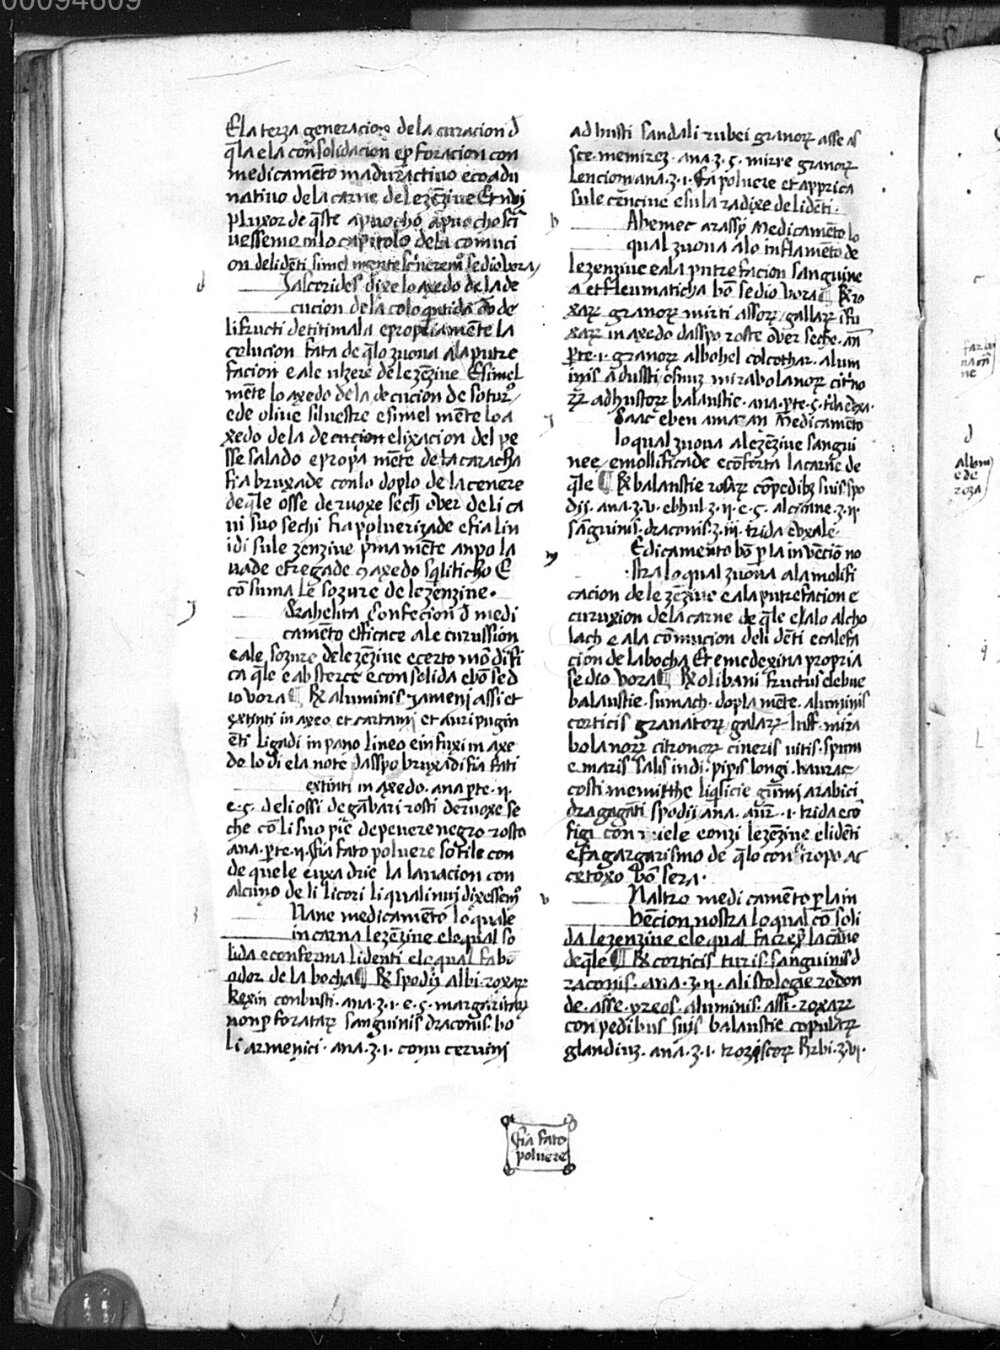 00094609
E la terza generacione de la curacion d̄
q̄la e la cōnsolidacion e ꝑforacion con
medicamēto maduractivo e coadu
nativo de la carne de lezēzive Et noi
ꝑ luxor de q̄ste apuocho apuocho scī
vessemo in lo capitolo dela comuci
on de li dēti simel mente scriverem̄ se dio vora
Salcorides dixe lo axedo de la de
cucion de la coloquitida ō de
li fructi de titimala e propriamente la
colucion fata de q̄lo zuova a la putre
facion e a le ulzere de lezēzive E simel
mēte lo axedo de la decucion de sotur
e de olive silvestre e simel mēte lo a
xedo de la decucion elixacion del pe
sse salado e propria mēte de la caracha
fia bruxade con lo doplo de la cenere
de q̄le osse de ruoxe sechi over de li ca
ni suo sechi fia polverizade e fia lin
idi su le zenzive prima mēte anpo la
vade e fregade 9 axedo sq̄liticho E
cōsuma le sozure de le zenzive.
Srahelita Confecion d̄ medi
camēto efficace a le curussion
e a le sozure de lezēzive e certo mōdifi
ca q̄le e absterce e consolida e bō se d
io vora ¶ ℞ aluminis jameni assi et
extinti in axeo et sartami et auripugin
ēti ligadi in pano lineo e infuxi in axe
do lo di e la note dasspo bruxadi fia fati
extinti in axedo. ana ꝑte .ii.
e. s. de li ossi de gābari rosti de ruoxe se
che cō li suo pie de pevere negro rosto
ana. ꝑte. ii. fia fato polvere sotile con
de quele euxa drie la lavacion con
alcuno de li licori li quali nui dixessem̄
Nane medicamēto lo quale
incarna lezēzive e lo qual so
lida e conferma li denti e lo qual fa bō
odor de la bocha ¶ ℞ spodii albi. roxaꝝ
Rexin conbusti. ana. ʒ. i. e. s. margaritaꝝ
non ꝑforataꝝ sanguinis draconis. bo
li armenici. ana. ʒ. i. cornu cervini
adhusti sandali rubei granoꝝ asse as
sce. memirez. ana. ʒ. s. mirre granoꝝ
lenciom ana. ʒ. i. Fia polvere et apprica
su le cēncive e su la radixe de li dēti.
Ahemec arassy Medicamēto lo
qual zuova a lo inflamēto de
lezenzive e a la putrefacion sanguine
a et fleumaticha bō se dio vora ¶ ℞ ro
xaꝝ granoꝝ mirti assoꝝ gallaꝝ ifu
xaꝝ in axedo dasspo roste over seche. an̄
ꝑte. i. granoꝝ albohel colcothar. alum
inis adussti osnuz mirabolanoꝝ citrino
ꝝ adhustoꝝ balaustie. ana. ꝑte. s. trida e uxa.
Saac eben amaran Medicamēto
lo qual zuova a lezēzive sangui
nee e mollificade e cōforta la carne de
q̄le ¶ ℞ balaustie roxaꝝ cō pedibꝫ suis. spo
dii. ana. ʒ. v. ebhul. ʒ. ii. e. s. alcanne. ʒ. ii.
sanguinis. draconis. ʒ. iii. trida e uxale.
Edicamēto bō ꝑ la invēcion no
stra lo qual zuova a la molifi
cacion de lezēzive e a la putrefacion e
curuxion de la carne de q̄le e lalo alcho
lach e a la cōmucion de li dēti e calefa
cion de la bocha Et e medexina propria
se dio vora ¶ ℞ olibani fructus elebne
balaustie. sumach. dopla mēte. aluminis
corticis granatoꝝ galaꝝ lust. mira
bolanoꝝ citronoꝝ cineris vitis. spum
e maris salis indi. pipis longi. baurac
costi memitthe liq̄licie gūmi arabici
draganti spodii ana. aur. i. trida e cō
figi con miele e onzi lezēzive e li dēti
e fa gargarismo de q̄lo con siropo ac
cetoxo bō sera.
Naltro medicamēto ꝑ la in
vēcion nostra lo qual cō soli
da lezenzive e lo qual fa creꝑ la carne
de q̄le ¶ ℞ corticis turis. sanguinis d
raconis. ana. ʒ. ii. aristologie rodon
de. asse. yreos. aluminis. assi. roxaꝝ
con pedibus suis balaustie copulaꝝ
glandiuz. ana. ʒ. i. trozisscoꝝ ℞rbi. ʒ. vi.
fia fato
polvere